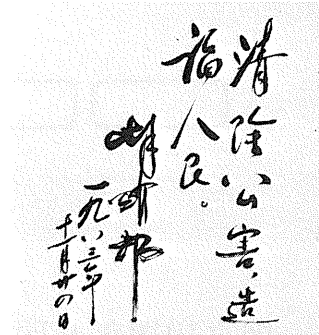 清除公害，造
福人民。
胡耀邦
一九八三年
十一月廿四日